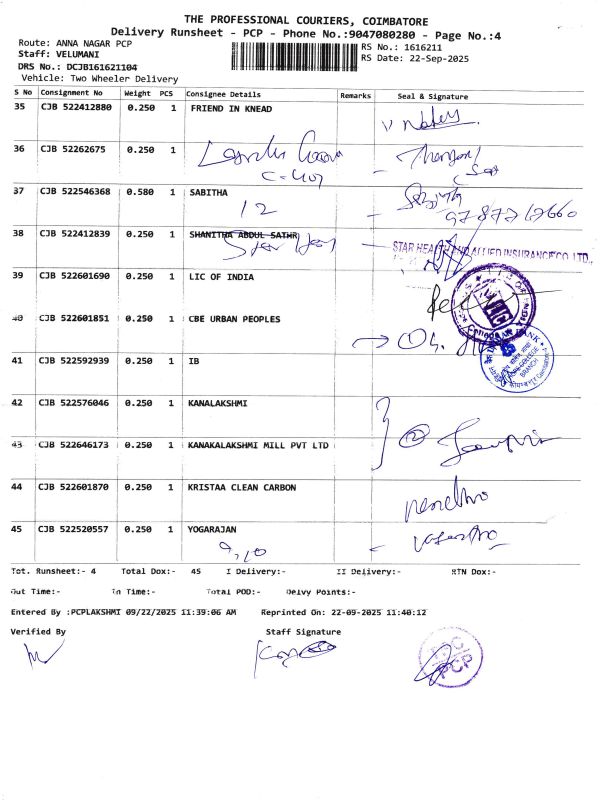 THE PROFESSIONAL COURIERS, COIMBATORE
Delivery Runsheet - PCP - Phone No.:9047080280 - Page No.:4
Route: ANNA NAGAR PCP
RS No.: 1616211
Staff: VELUMANI
RS Date: 22-Sep-2025
DRS No.: DCJB161621104
Vehicle: Two Wheeler Delivery
S No Consignment No Weight PCS Consignee Details Remarks Seal & Signature
35 CJB 522412880 0.250 1 FRIEND IN KNEAD
36 CJB 52262675 0.250 1
37 CJB 522546368 0.580 1 SABITHA
12
38 CJB 522412839 0.250 1 SHANITHA ABDUL SATHR
STAR HEALTH AND ALLIED INSURANCE CO. LTD.,
39 CJB 522601690 0.250 1 LIC OF INDIA
40 CJB 522601851 0.250 1 CBE URBAN PEOPLES
41 CJB 522592939 0.250 1 IB
42 CJB 522576046 0.250 1 KANALAKSHMI
43 CJB 522646173 0.250 1 KANAKALAKSHMI MILL PVT LTD
44 CJB 522601870 0.250 1 KRISTAA CLEAN CARBON
45 CJB 522520557 0.250 1 YOGARAJAN
Tot. Runsheet:- 4 Total Dox:- 45 I Delivery:- II Delivery:- RTN Dox:-
Out Time:- In Time:- Total POD:- Delvy Points:-
Entered By :PCPLAKSHMI 09/22/2025 11:39:06 AM Reprinted On: 22-09-2025 11:40:12
Verified By Staff Signature